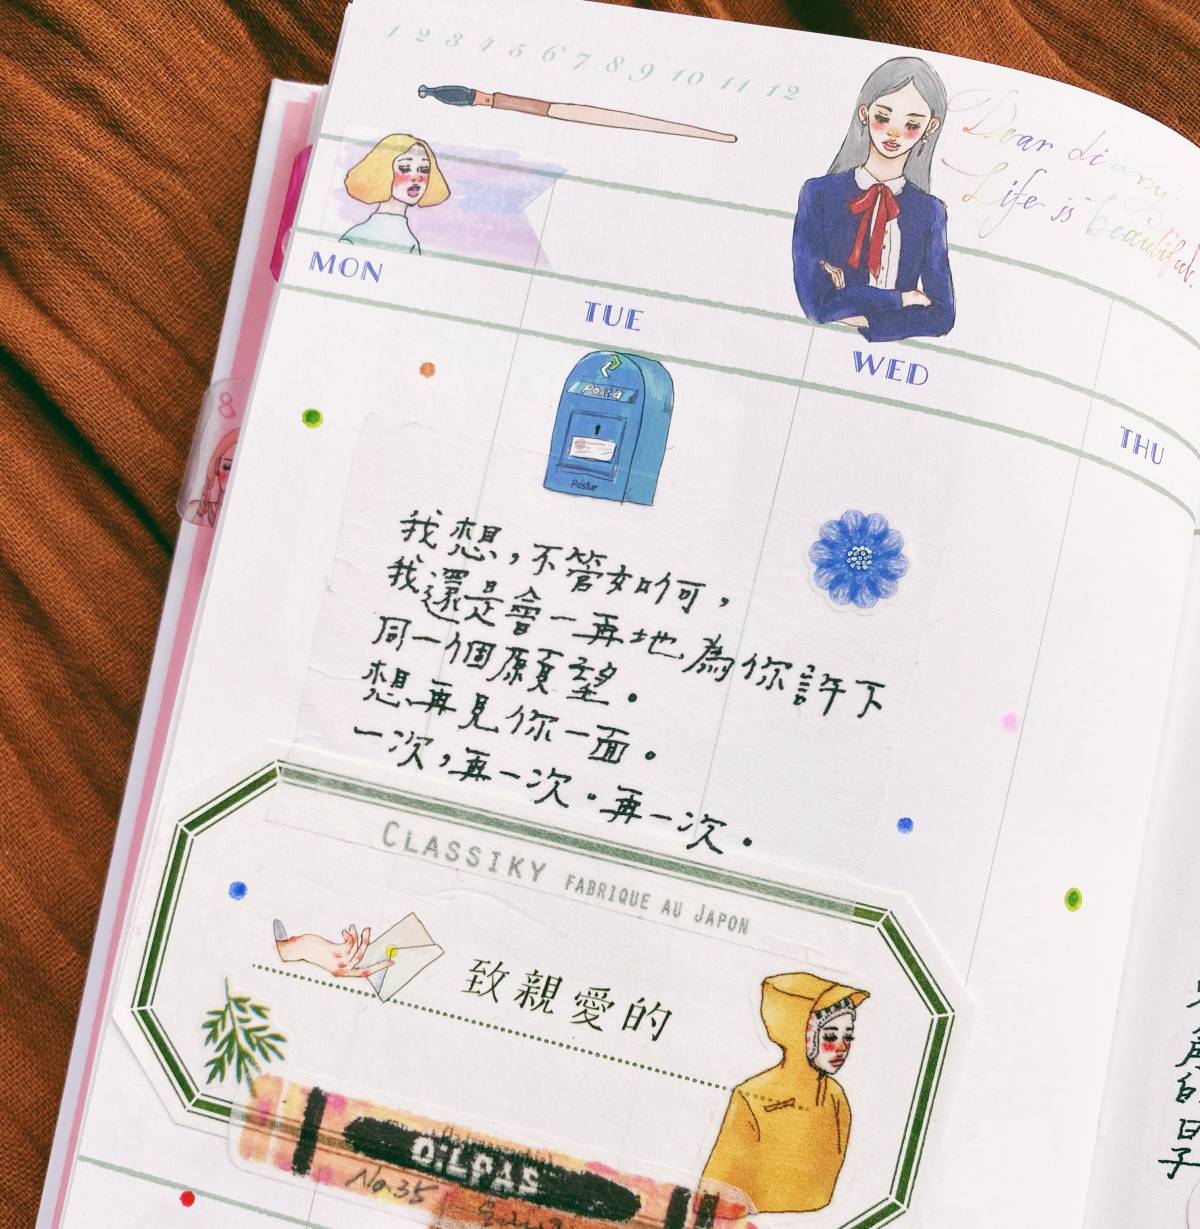 1 2 3 4 5 6 7 8 9 10 11 12
Dear diary
Life is beautiful.
MON
TUE
WED
THU
8
Posta
Postur
我想，不管如何，
我還是會一再地為你許下
同一個願望。
想再見你一面。
一次，再一次。再一次。
CLASSIKY FABRIQUE AU JAPON
致親愛的
No.35
的日子